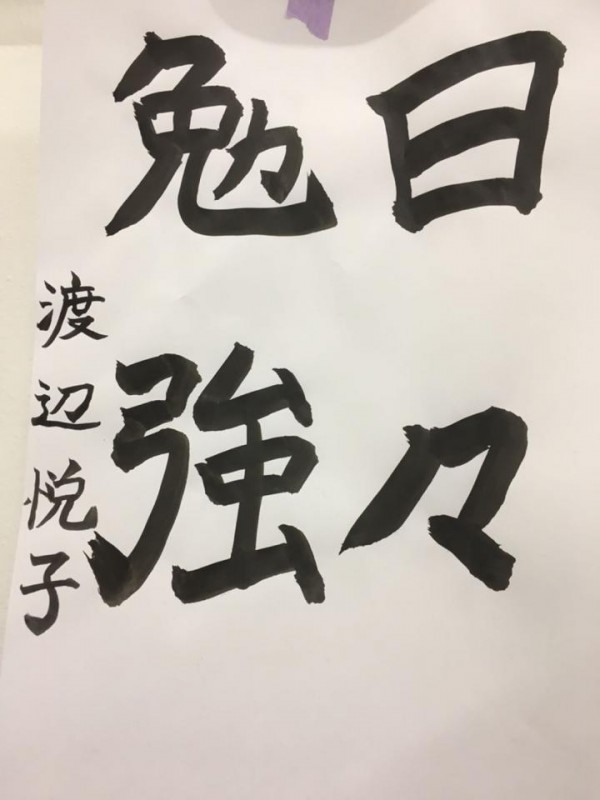 日々
勉強
渡辺悦子